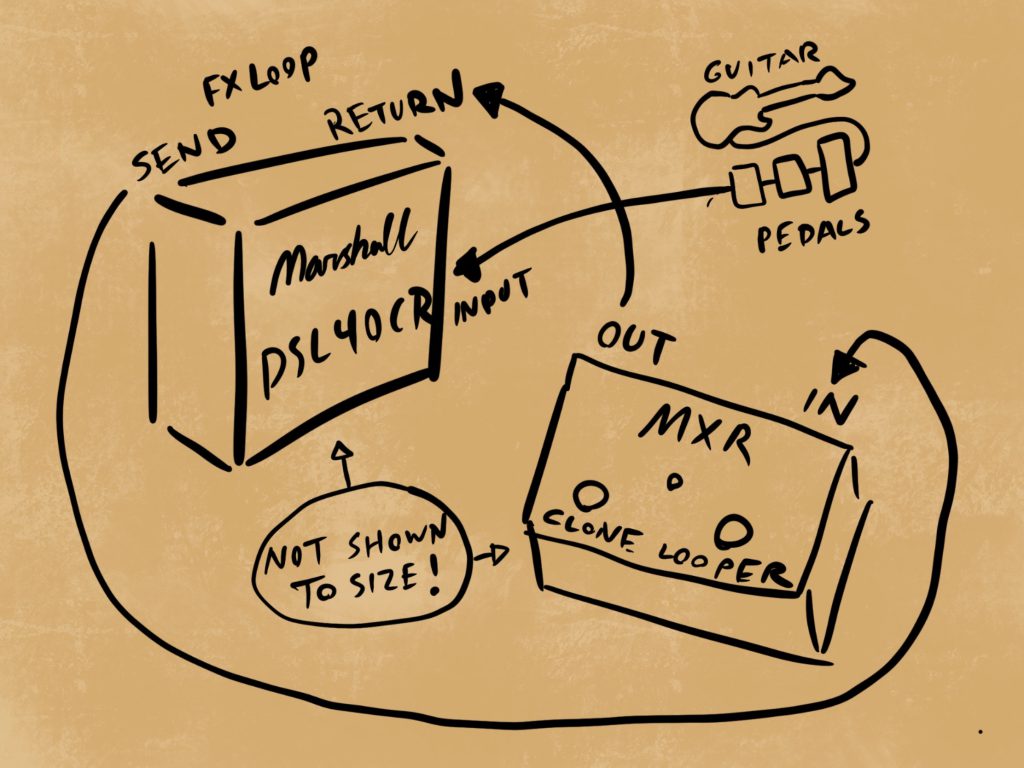 FX LOOP
SEND
RETURN
GUITAR
PEDALS
Marshall
DSL40CR
INPUT
OUT
IN
MXR
CLONE LOOPER
NOT SHOWN
TO SIZE!